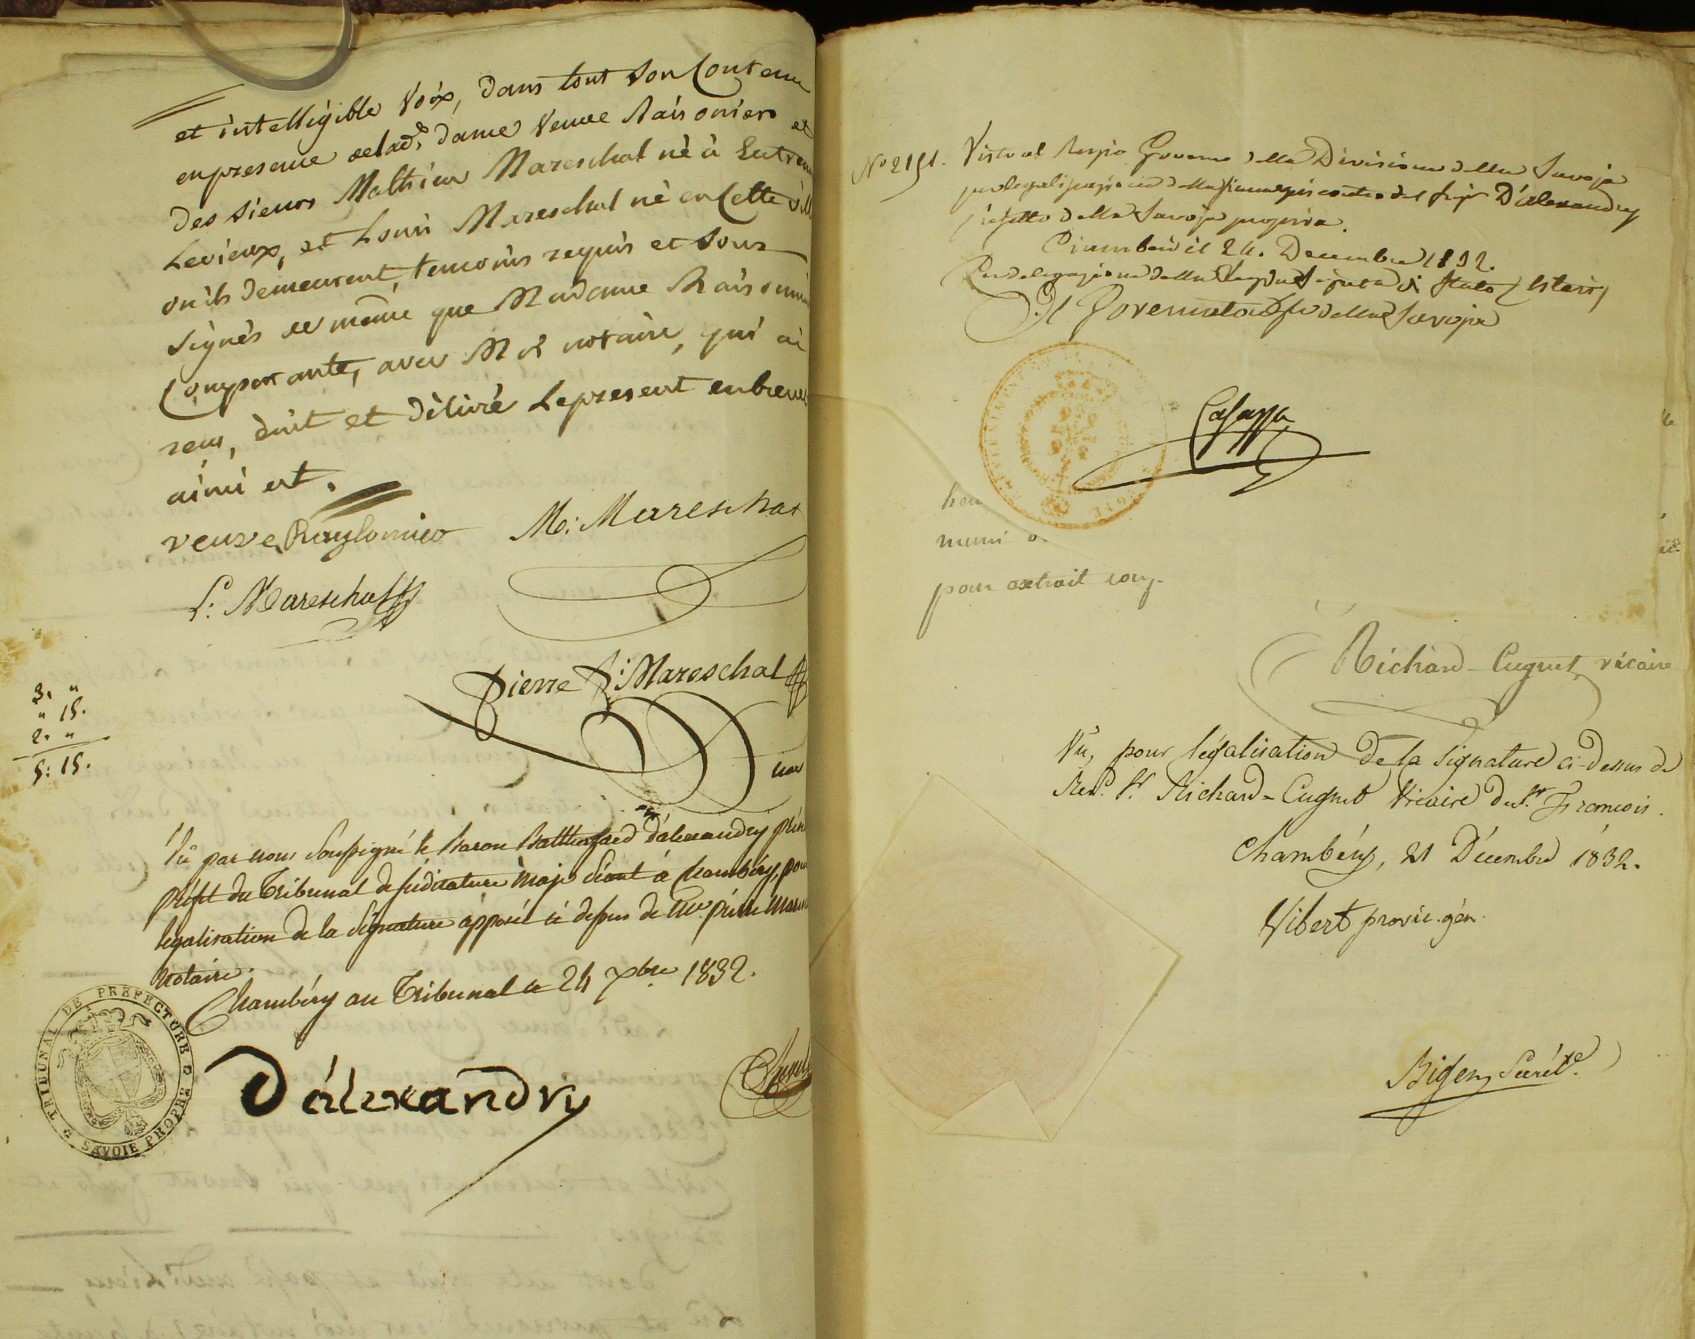 et intelligible voix, dans tout son Contenu
en presence de lad.e dame veuve Raisonier et
des sieurs Mathieu Mareschal né à Entremont
Levieux, et Louis Mareschal né en Cette ville
où ils demeurent, temoins requis et sous
signés de même que Madame
Comparante, avec M.e notaire, qui ai
reçu, écrit et délivré le present en brevet
ainsi est.
veuve
M: Mareschal
L: Mareschal
Pierre Mareschal
3. "
" 15.
2. "
5: 15.
Vû par nous soussigné le Baron d'alexandry
préfet du Tribunal de judicature maje séant à Chambéry, pour
légalisation de la signature apposée ci dessus de
notaire.
Chambéry au Tribunal le 24 xbre 1832.
TRIBUNAL DE PREFECTURE DE SAVOIE PROPRE
D'alexandry
No 2151. Visto al Regio Governo della Divisione della Savoja
per legalizzazione della firma del Sigr D'alexandry
prefetto della Savoja propria.
Ciamberì il 24. Decembre 1832.
Per delegazione della Regia Segreteria di Stato Esteri
Il Governatore della Savoja
Casazza
muni
pour extrait conf.
Richard-Cugnet, vicaire
Vu, pour légalisation de la signature ci-dessus de
Rev.d S.r Richard-Cugnet Vicaire de S.t François.
Chambéry, 21 Décembre 1832.
Vibert provic. gén.